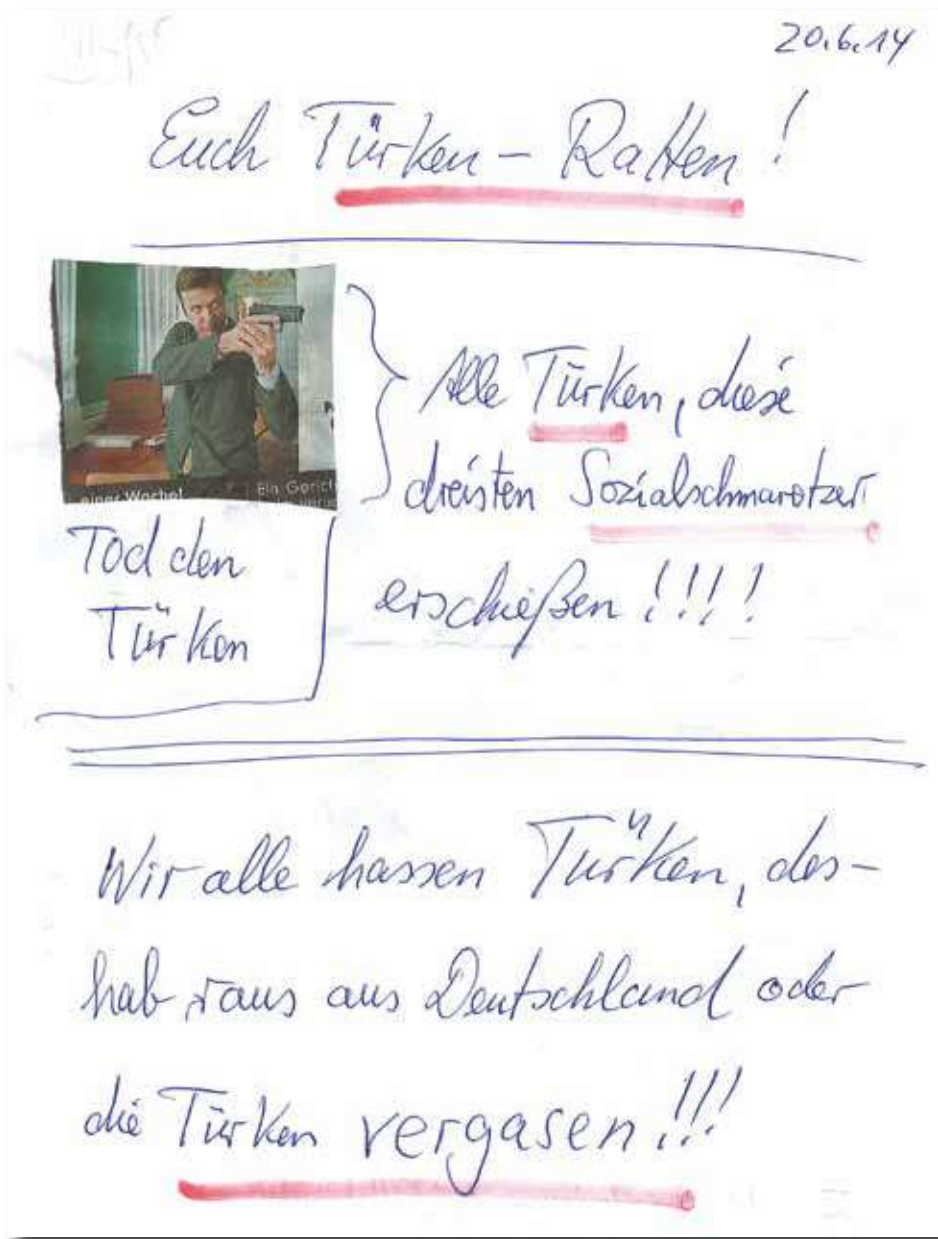 20.6.14
Euch Türken - Ratten!
einer Wachel
Ein Gericht
Alle Türken, diese
dreisten Sozialschmarotzer
erschießen!!!!
Tod den
Türken
Wir alle hassen Türken, des-
hab raus aus Deutschland oder
die Türken vergasen!!!